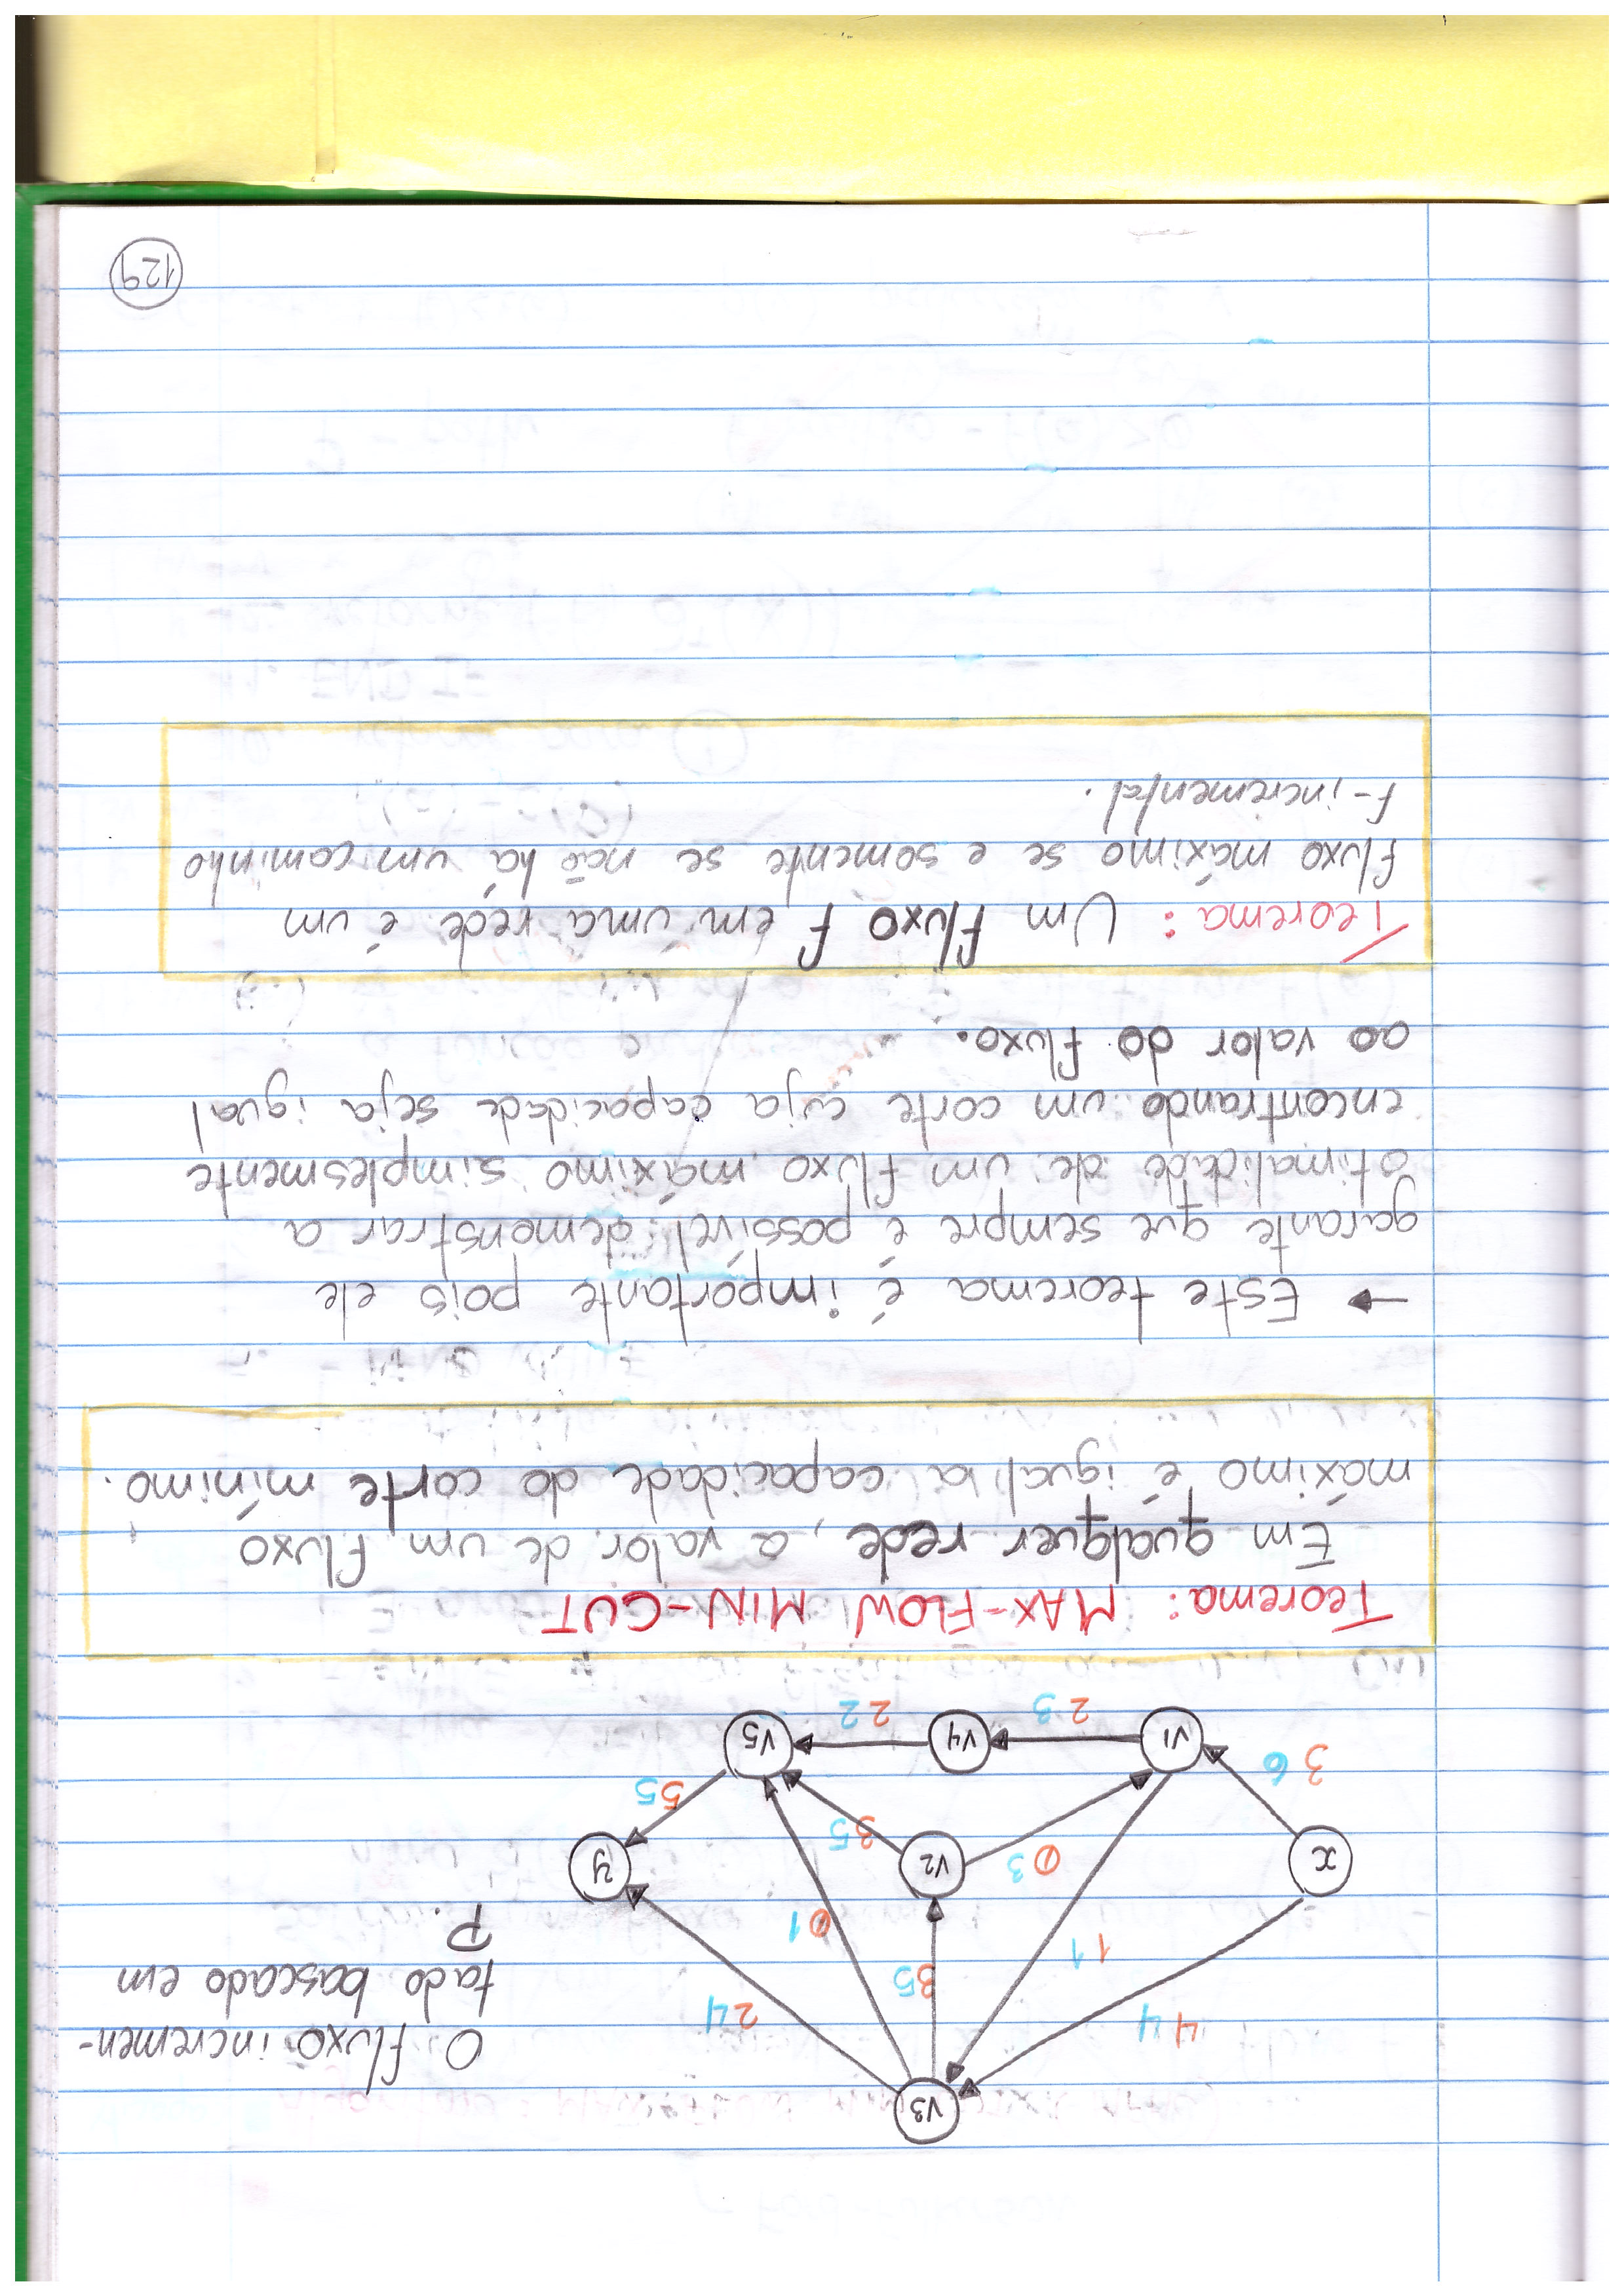 v3
4 4
1 1
3 5
0 1
2 4
O fluxo incremen-
tado bascado em
P.
x
0 3
v2
3 5
y
3 6
v1
2 3
v4
2 2
v5
5 5
Teorema: MAX-FLOW MIN-CUT
Em qualquer rede, o valor de um fluxo
máximo é igual a capacidade do corte mínimo.
→ Este teorema é importante pois ele
garante que sempre é possível demonstrar a
otimalidade de um fluxo máximo simplesmente
encontrando um corte cuja capacidade seja igual
ao valor do fluxo.
Teorema: Um fluxo f em uma rede é um
fluxo máximo se e somente se não há um caminho
f-incremental.
129